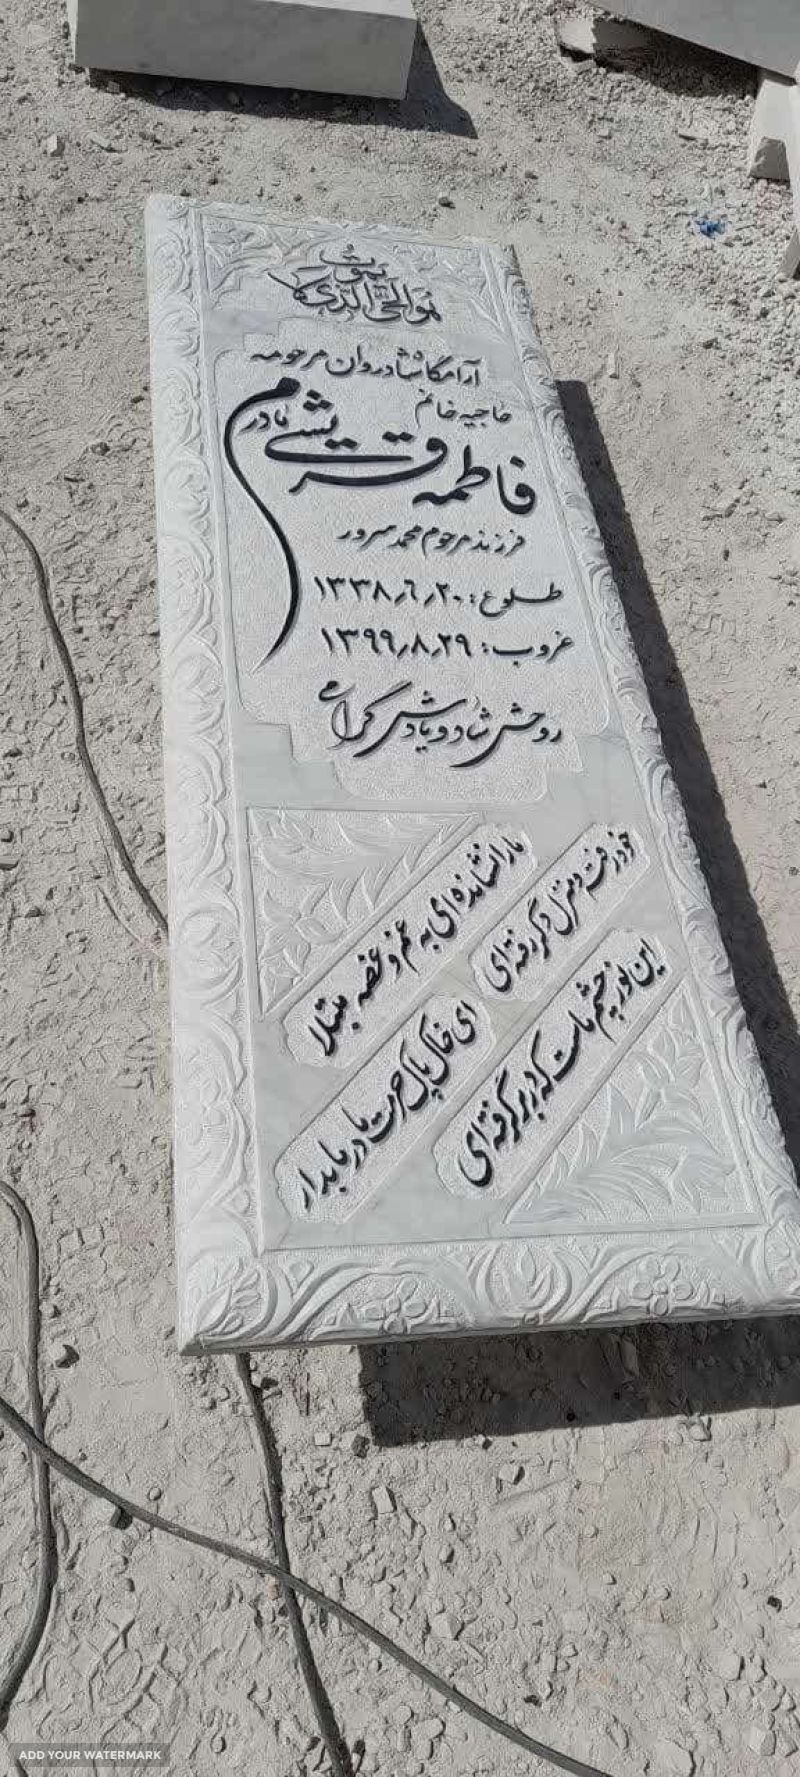 هوالحی الذی لا
یموت
آرامگاه شادروان مرحومه
حاجیه خانم
فاطمه قریشی
مادرم
فرزند مرحوم محمد سرور
طلوع: ۱۳۳۸٫۶٫۲۰
غروب: ۱۳۹۹٫۸٫۲۹
روحش شاد و یادش گرامی
خود رفته و منزل دگر رفته ای
ما را نشانده ای به غم و غصه مبتلا
این نور چشم ماست که در بر گرفته ای
ای خاک پاک حرمت مادر ما بدار
ADD YOUR WATERMARK